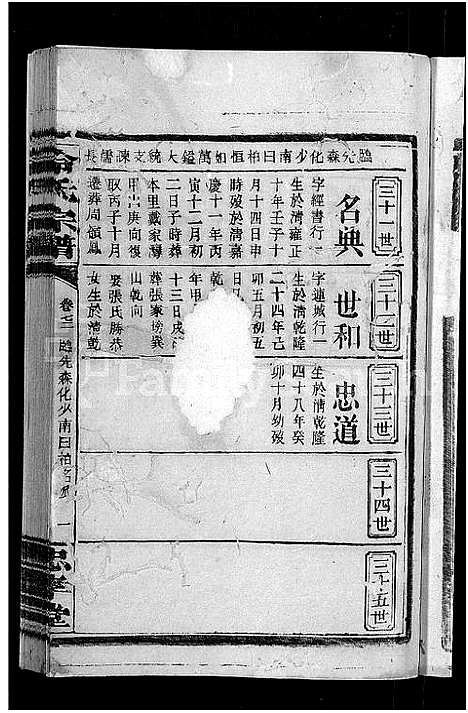 長儒諫支統大鎰萬如恒柏曰南少化森先
三十一世
名典
字經書行一
生於清雍正
十年壬子十
月十四日申
時歿於清嘉
慶十一年丙
寅十二月初
二日子時葬
本里戴家
甲山庚向復
取丙子十月
遷葬周嶺鳳
三十二世
世和
字連城行一
生於清乾隆
二十四年己
卯五月初五
日
乾
年甲
十三日戌
葬張家塝巽
山乾向
娶張氏勝恭
女生於清乾
三十三世
忠道
生於清乾隆
四十八年癸
卯十月幼歿
三十四世
三十五世
氏宗譜
卷七二
先森化少南曰柏名
一
忠孝堂